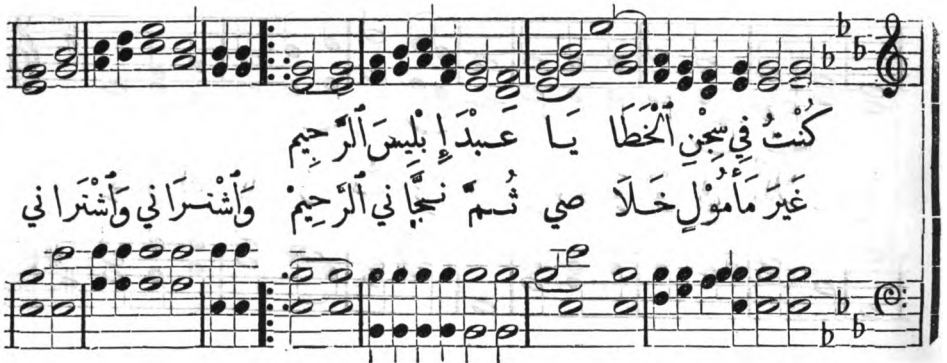 كُنْتُ فِي سِجْنِ ٱلْخَطَا يَا عَـبْدَ إِبْلِيسَ ٱلرَّجِيم
غَيْرَ مَأْمُوْلٍ خَـلَا صِي ثُـمَّ نَجَّانِي ٱلرَّحِيمْ وَٱشْتَـرَانِي وَٱشْتَرَانِي